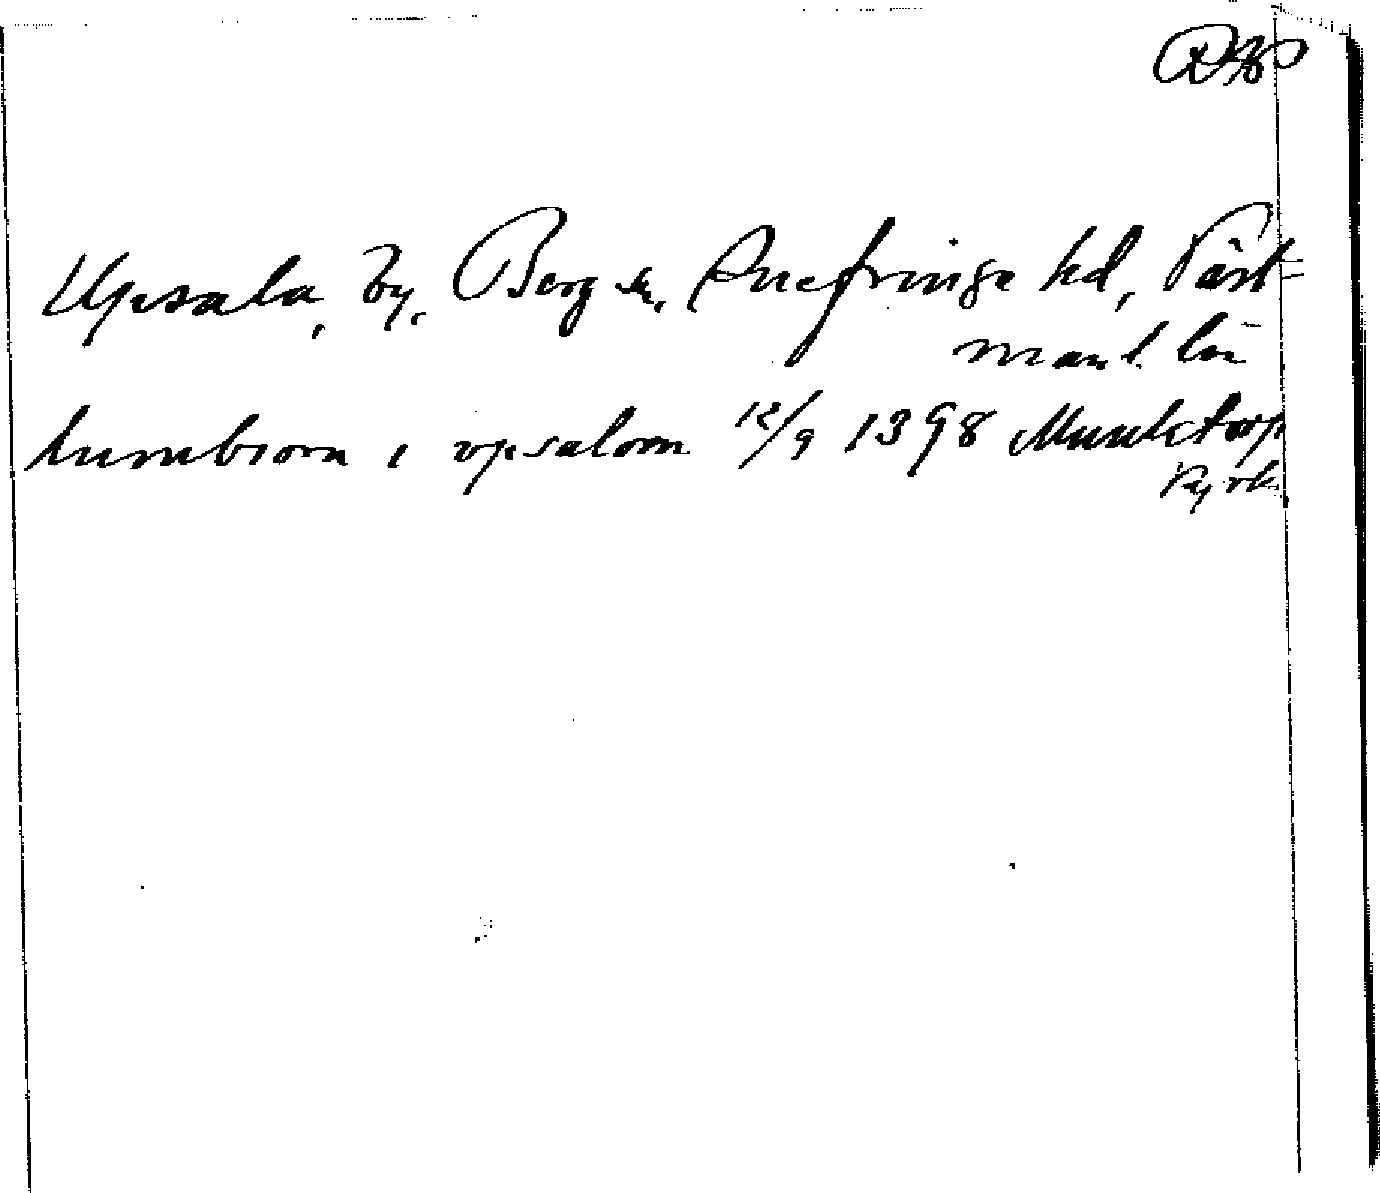 Upsala, by, Berg sn, Snefringe hd, Väst-
manl. län
humbiorn i vpsalom 12/9 1398 Munktorp
Kyrk.